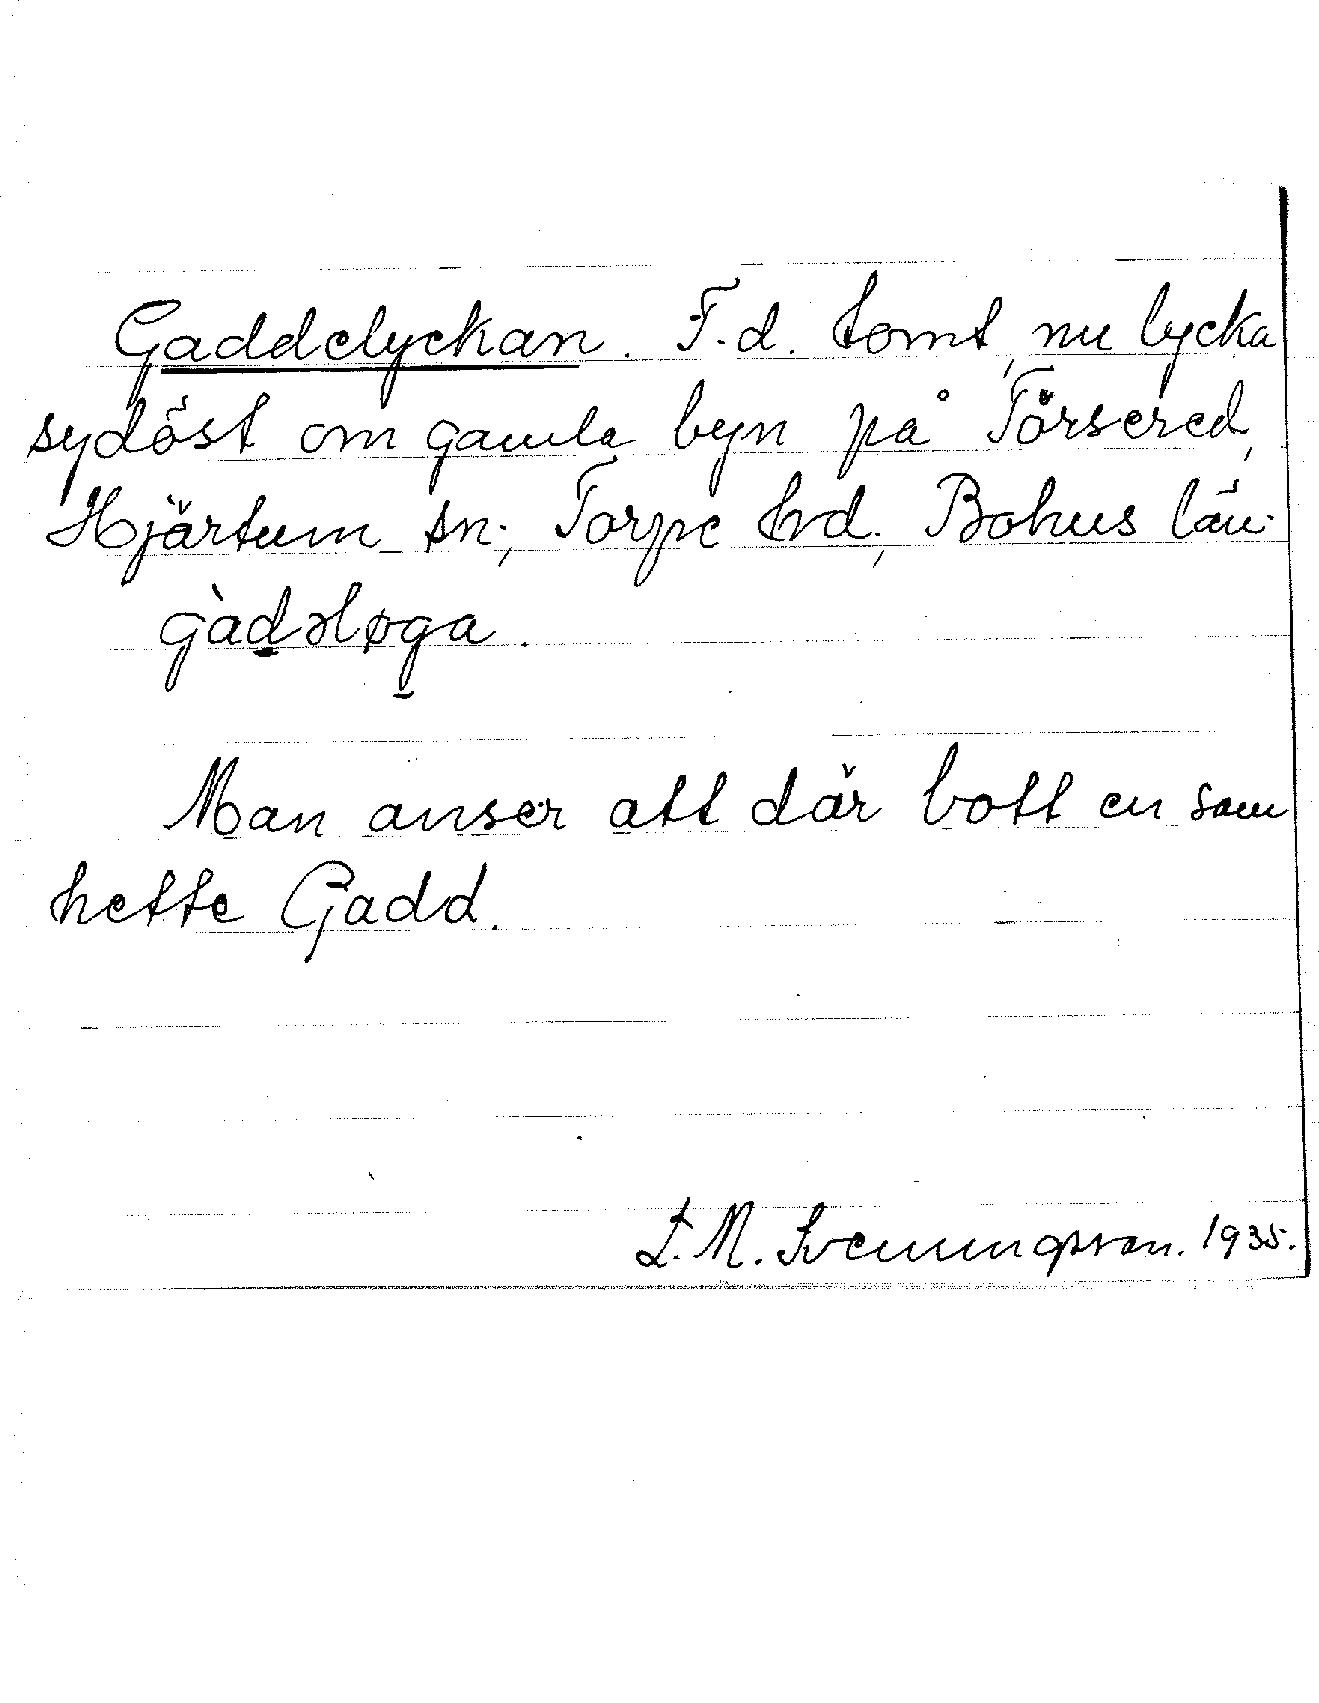 Gaddelyckan. F.d. tomt, nu lycka
sydöst om gamla byn på Törsered,
Hjärtum sn., Torpe hd., Bohus län.
gàd̲əløg̲a.
Man anser att där bott en som
hette Gadd.
L. M. Svenungsson. 1935.